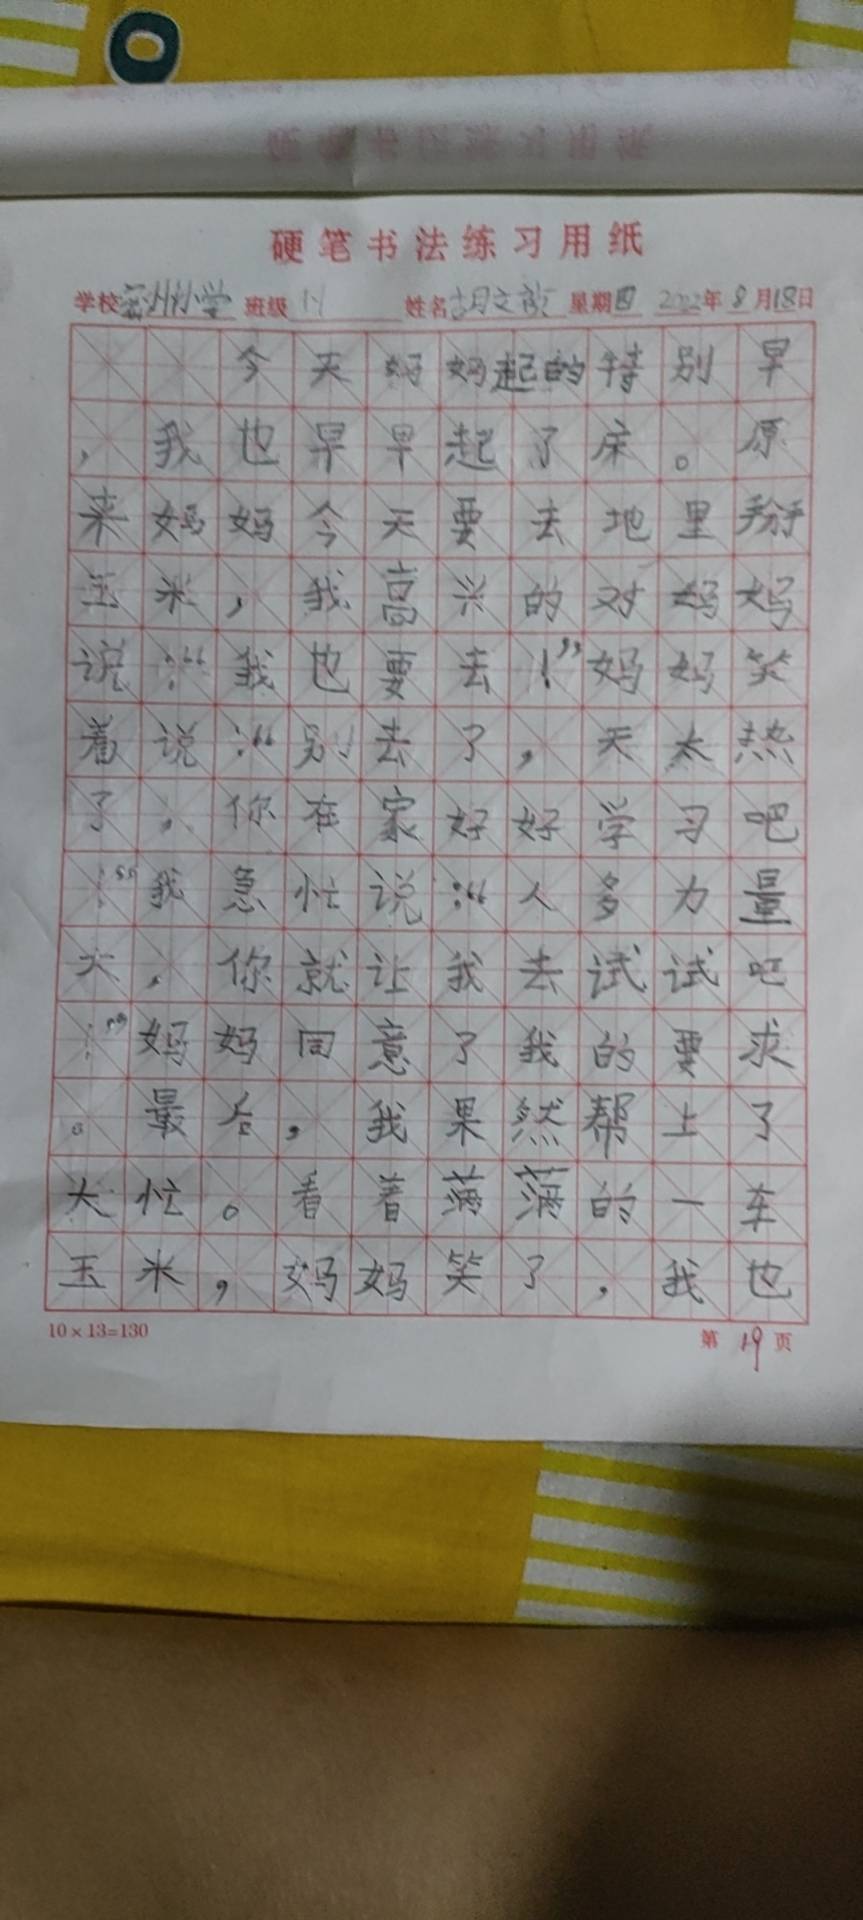 硬笔书法练习用纸
学校密州小学 班级1.1 姓名胡文 星期四 2022年8月18日
今天妈妈起的特别早
，我也早早起了床。原
来妈妈今天要去地里掰
玉米，我高兴的对妈妈
说：“我也要去！”妈妈笑
着说：“别去了，天太热
了，你在家好好学习吧
！”我急忙说：“人多力量
大，你就让我去试试吧
！”妈妈同意了我的要求
。最后，我果然帮上了
大忙。看着满满的一车
玉米，妈妈笑了，我也
10×13=130
第19页